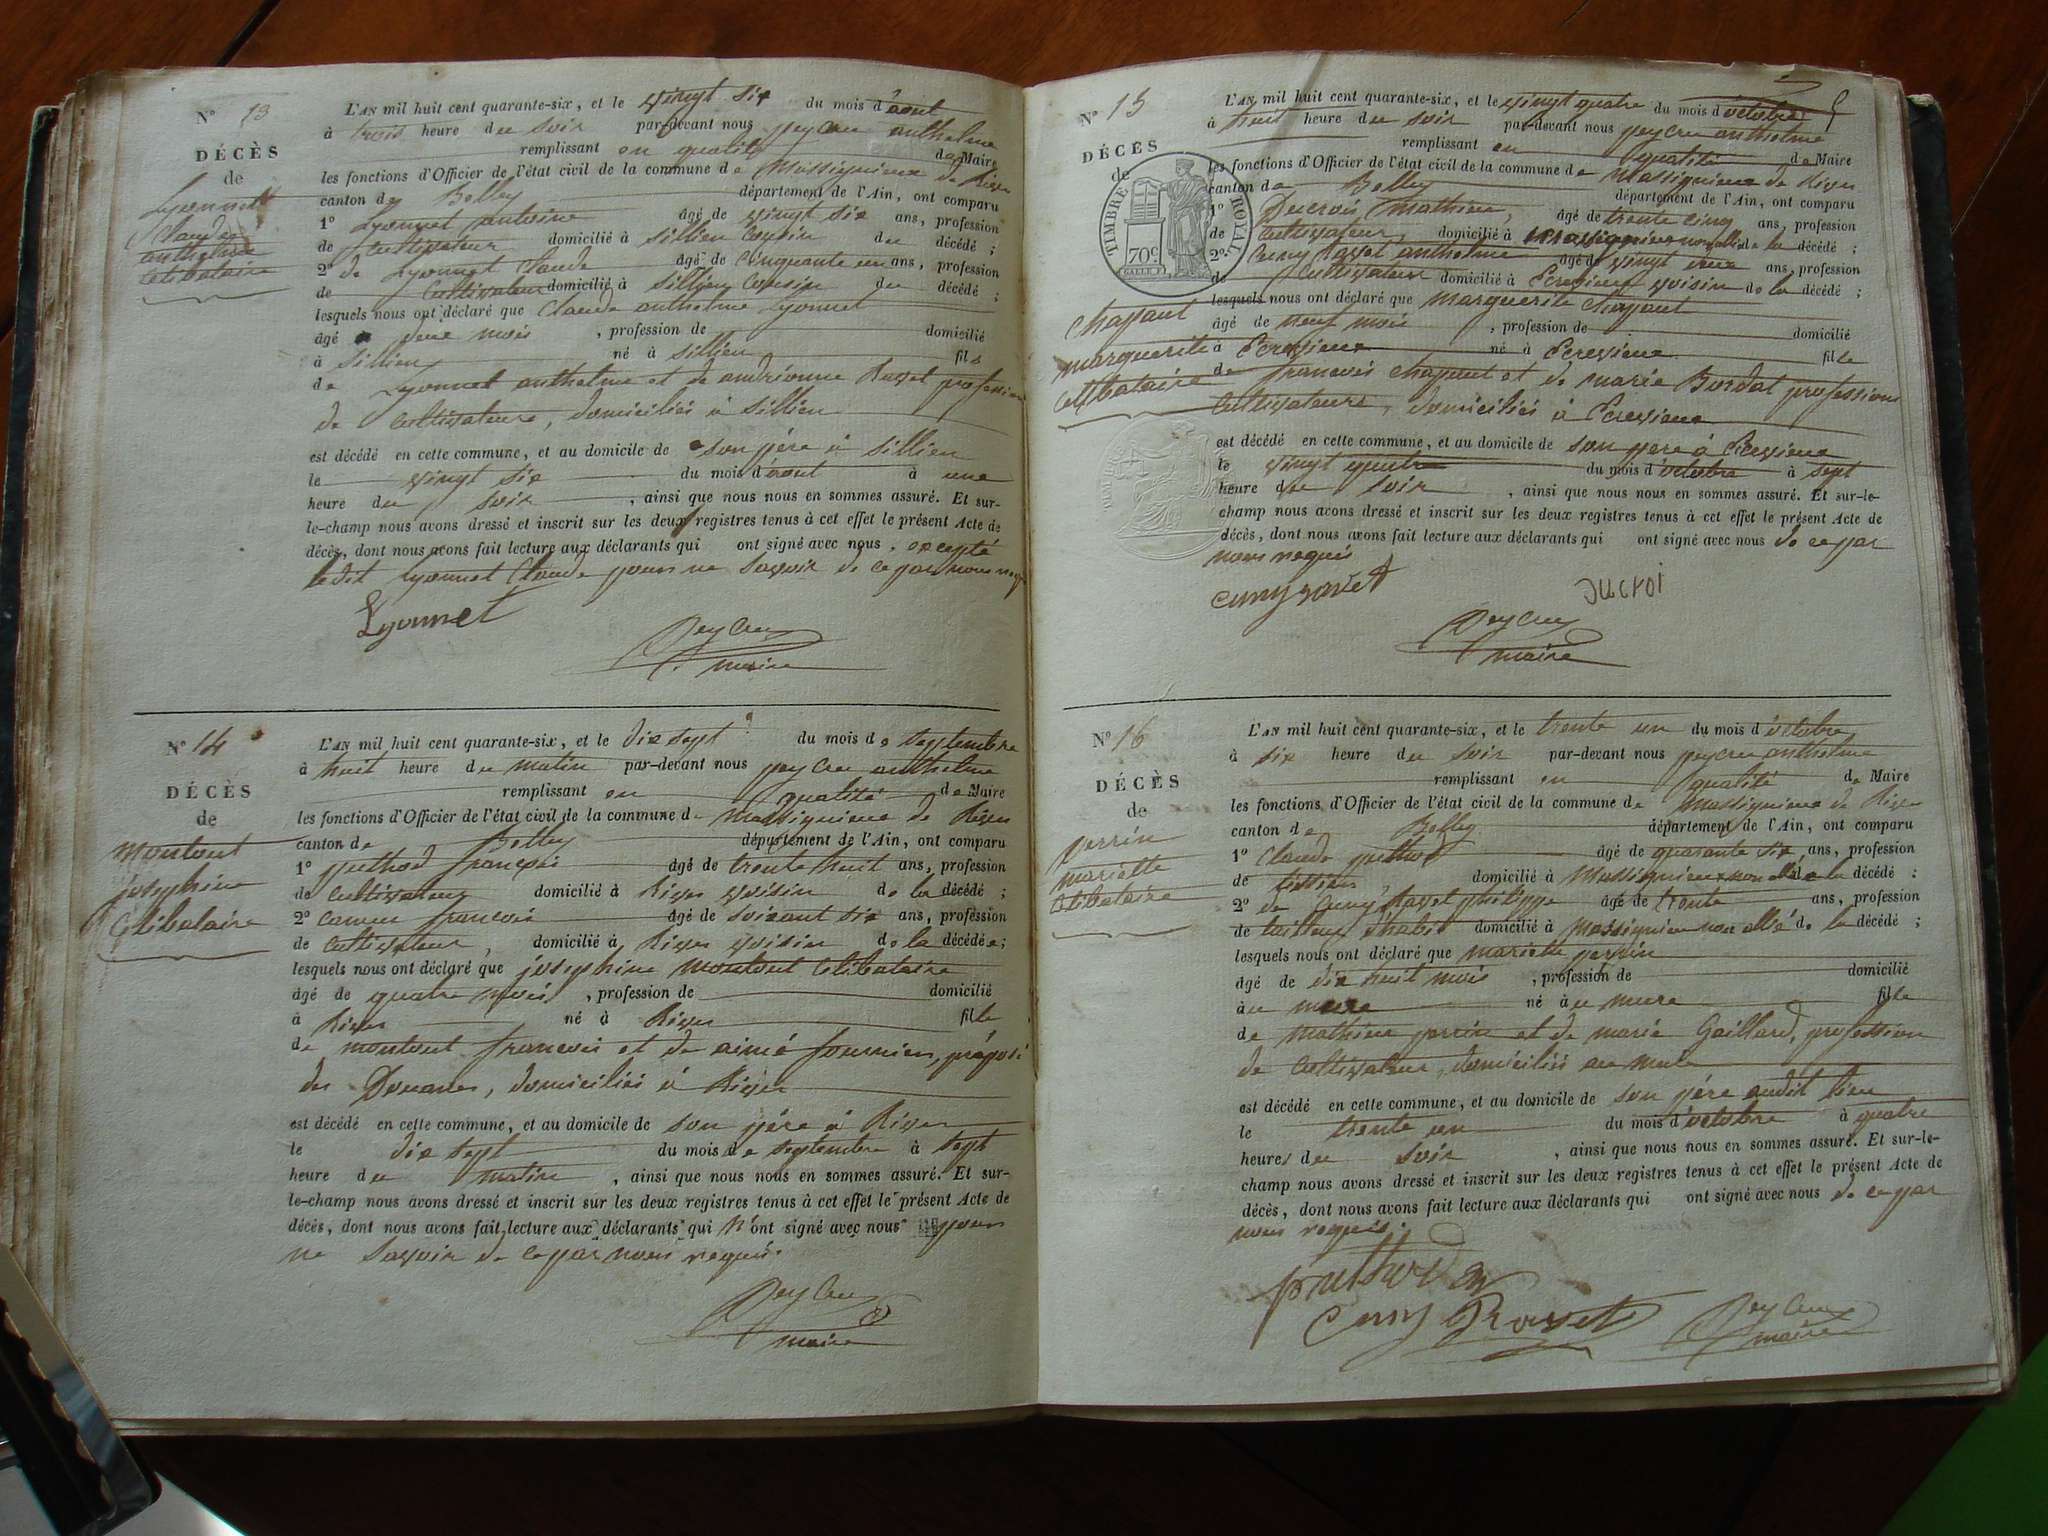 N° 13
DÉCÈS
de
Lyonnet
Claude
anthelme
célibataire
L'AN mil huit cent quarante-six, et le vingt six du mois d'aout
à trois heure du soir par-devant nous peycru anthelme
remplissant en qualité de Maire
les fonctions d'Officier de l'état civil de la commune de Massignieux de Rives
canton de Belley département de l'Ain, ont comparu
1° Lyonnet antoine âgé de vingt six ans, profession
de cultivateur domicilié à Sillien cousin du décédé ;
2° de Lyonnet Claude âgé de cinquante un ans, profession
de cultivateur domicilié à Sillien cousin du décédé ;
lesquels nous ont déclaré que Claude anthelme Lyonnet
âgé mois , profession de domicilié
à Sillien né à Sillien fils
de Lyonnet anthelme et de andrienne Ravet profession
de cultivateurs, domiciliés à Sillien
est décédé en cette commune, et au domicile de son père à Sillien
le vingt six du mois d'aout à une
heure du soir , ainsi que nous nous en sommes assuré. Et sur-
le-champ nous avons dressé et inscrit sur les deux registres tenus à cet effet le présent Acte de
décès, dont nous avons fait lecture aux déclarants qui ont signé avec nous , excepté
ledit Lyonnet Claude pour ne savoir de ce par nous requis
Lyonnet
Peycru
maire
N° 14
DÉCÈS
de
montout
josephine
Célibataire
L'AN mil huit cent quarante-six, et le dix sept du mois de septembre
à huit heure du matin par-devant nous peycru anthelme
remplissant en qualité de Maire
les fonctions d'Officier de l'état civil de la commune de Massignieux de Rives
canton de Belley département de l'Ain, ont comparu
1° puthod françois âgé de trente huit ans, profession
de cultivateur domicilié à Rives voisin de la décédé ;
2° françois âgé de soixant six ans, profession
de cultivateur, domicilié à Rives voisin de la décédée ;
lesquels nous ont déclaré que josephine montout célibataire
âgé de quatre mois , profession de domicilié
à Rives né à Rives fille
de montout francois et de aimé fournier, préposé
des Douanes, domiciliés à Rives
est décédé en cette commune, et au domicile de son père à Rives
le dix sept du mois de septembre à sept
heure du matin , ainsi que nous nous en sommes assuré. Et sur-
le-champ nous avons dressé et inscrit sur les deux registres tenus à cet effet le présent Acte de
décès, dont nous avons fait lecture aux déclarants qui n'ont signé avec nous pour
ne savoir de ce par nous requis.
Peycru
maire
N° 15
DÉCÈS
de
TIMBRE ROYAL
70c
chapant
marguerite
célibataire
L'AN mil huit cent quarante-six, et le vingt quatre du mois d'octobre
à huit heure du soir par-devant nous peycru anthelme
remplissant en qualité de Maire
les fonctions d'Officier de l'état civil de la commune de Massignieux de Rives
canton de Belley département de l'Ain, ont comparu
1° Ducrois, mathieu, âgé de trente cinq ans, profession
de cultivateur, domicilié à massignieux non allié de la décédé ;
2° Cuny Ravet anthelme âgé de vingt deux ans, profession
de cultivateur domicilié à Ecrevieux voisin de la décédé ;
lesquels nous ont déclaré que marguerite chapant
âgé de neuf mois , profession de domicilié
à Ecrevieux né à Ecrevieux fille
de francois chapant et de marie Bordat profession
cultivateurs, domiciliés à Ecrevieux
est décédé en cette commune, et au domicile de son père à Ecrevieux
le vingt quatre du mois d'octobre à sept
heure du soir , ainsi que nous nous en sommes assuré. Et sur-le-
champ nous avons dressé et inscrit sur les deux registres tenus à cet effet le présent Acte de
décès, dont nous avons fait lecture aux déclarants qui ont signé avec nous de ce par
nous requis
cuny ravet ducroi
Peycru
maire
N° 16
DÉCÈS
de
perrin
mariette
célibataire
L'AN mil huit cent quarante-six, et le trente un du mois d'octobre
à six heure du soir par-devant nous peycru anthelme
remplissant en qualité de Maire
les fonctions d'Officier de l'état civil de la commune de Massignieux de Rives
canton de Belley département de l'Ain, ont comparu
1° Claude puthod âgé de quarante six ans, profession
de tissier, domicilié à Massignieux non allié de la décédé ;
2° de Cuny Ravet philippe âgé de trente ans, profession
de tailleur d'habit domicilié à Massignieu non allié de la décédé ;
lesquels nous ont déclaré que mariette perrin
âgé de dix huit mois , profession de domicilié
à au mure né à au mure fille
de mathieu perrin et de marie Gaillard, profession
de cultivateur, domiciliés au mure
est décédé en cette commune, et au domicile de son père audit lieu
le trente un du mois d'octobre à quatre
heures du soir , ainsi que nous nous en sommes assuré. Et sur-le-
champ nous avons dressé et inscrit sur les deux registres tenus à cet effet le présent Acte de
décès, dont nous avons fait lecture aux déclarants qui ont signé avec nous de ce par
nous requis.
puthod
Cuny Ravet
Peycru
maire